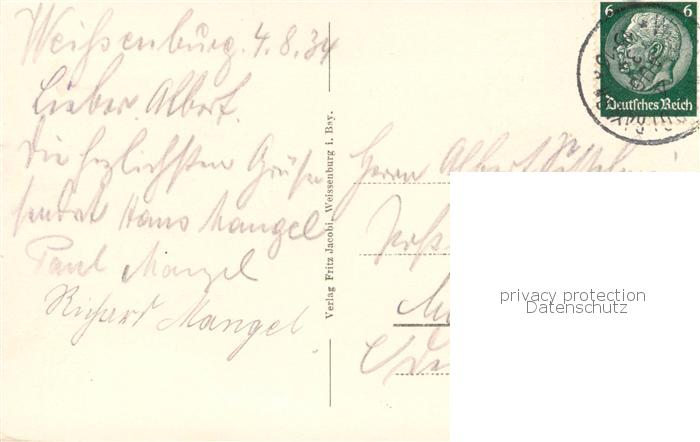 Weißenburg. 4.8.34
Lieber Albert.
Die herzlichsten Grüße
sendet Hans Mangel
Paul Mangel
Richard Mangel
Verlag Fritz Jacobi, Weissenburg i. Bay.
6 6
Deutsches Reich
Herrn Albert
privacy protection
Datenschutz